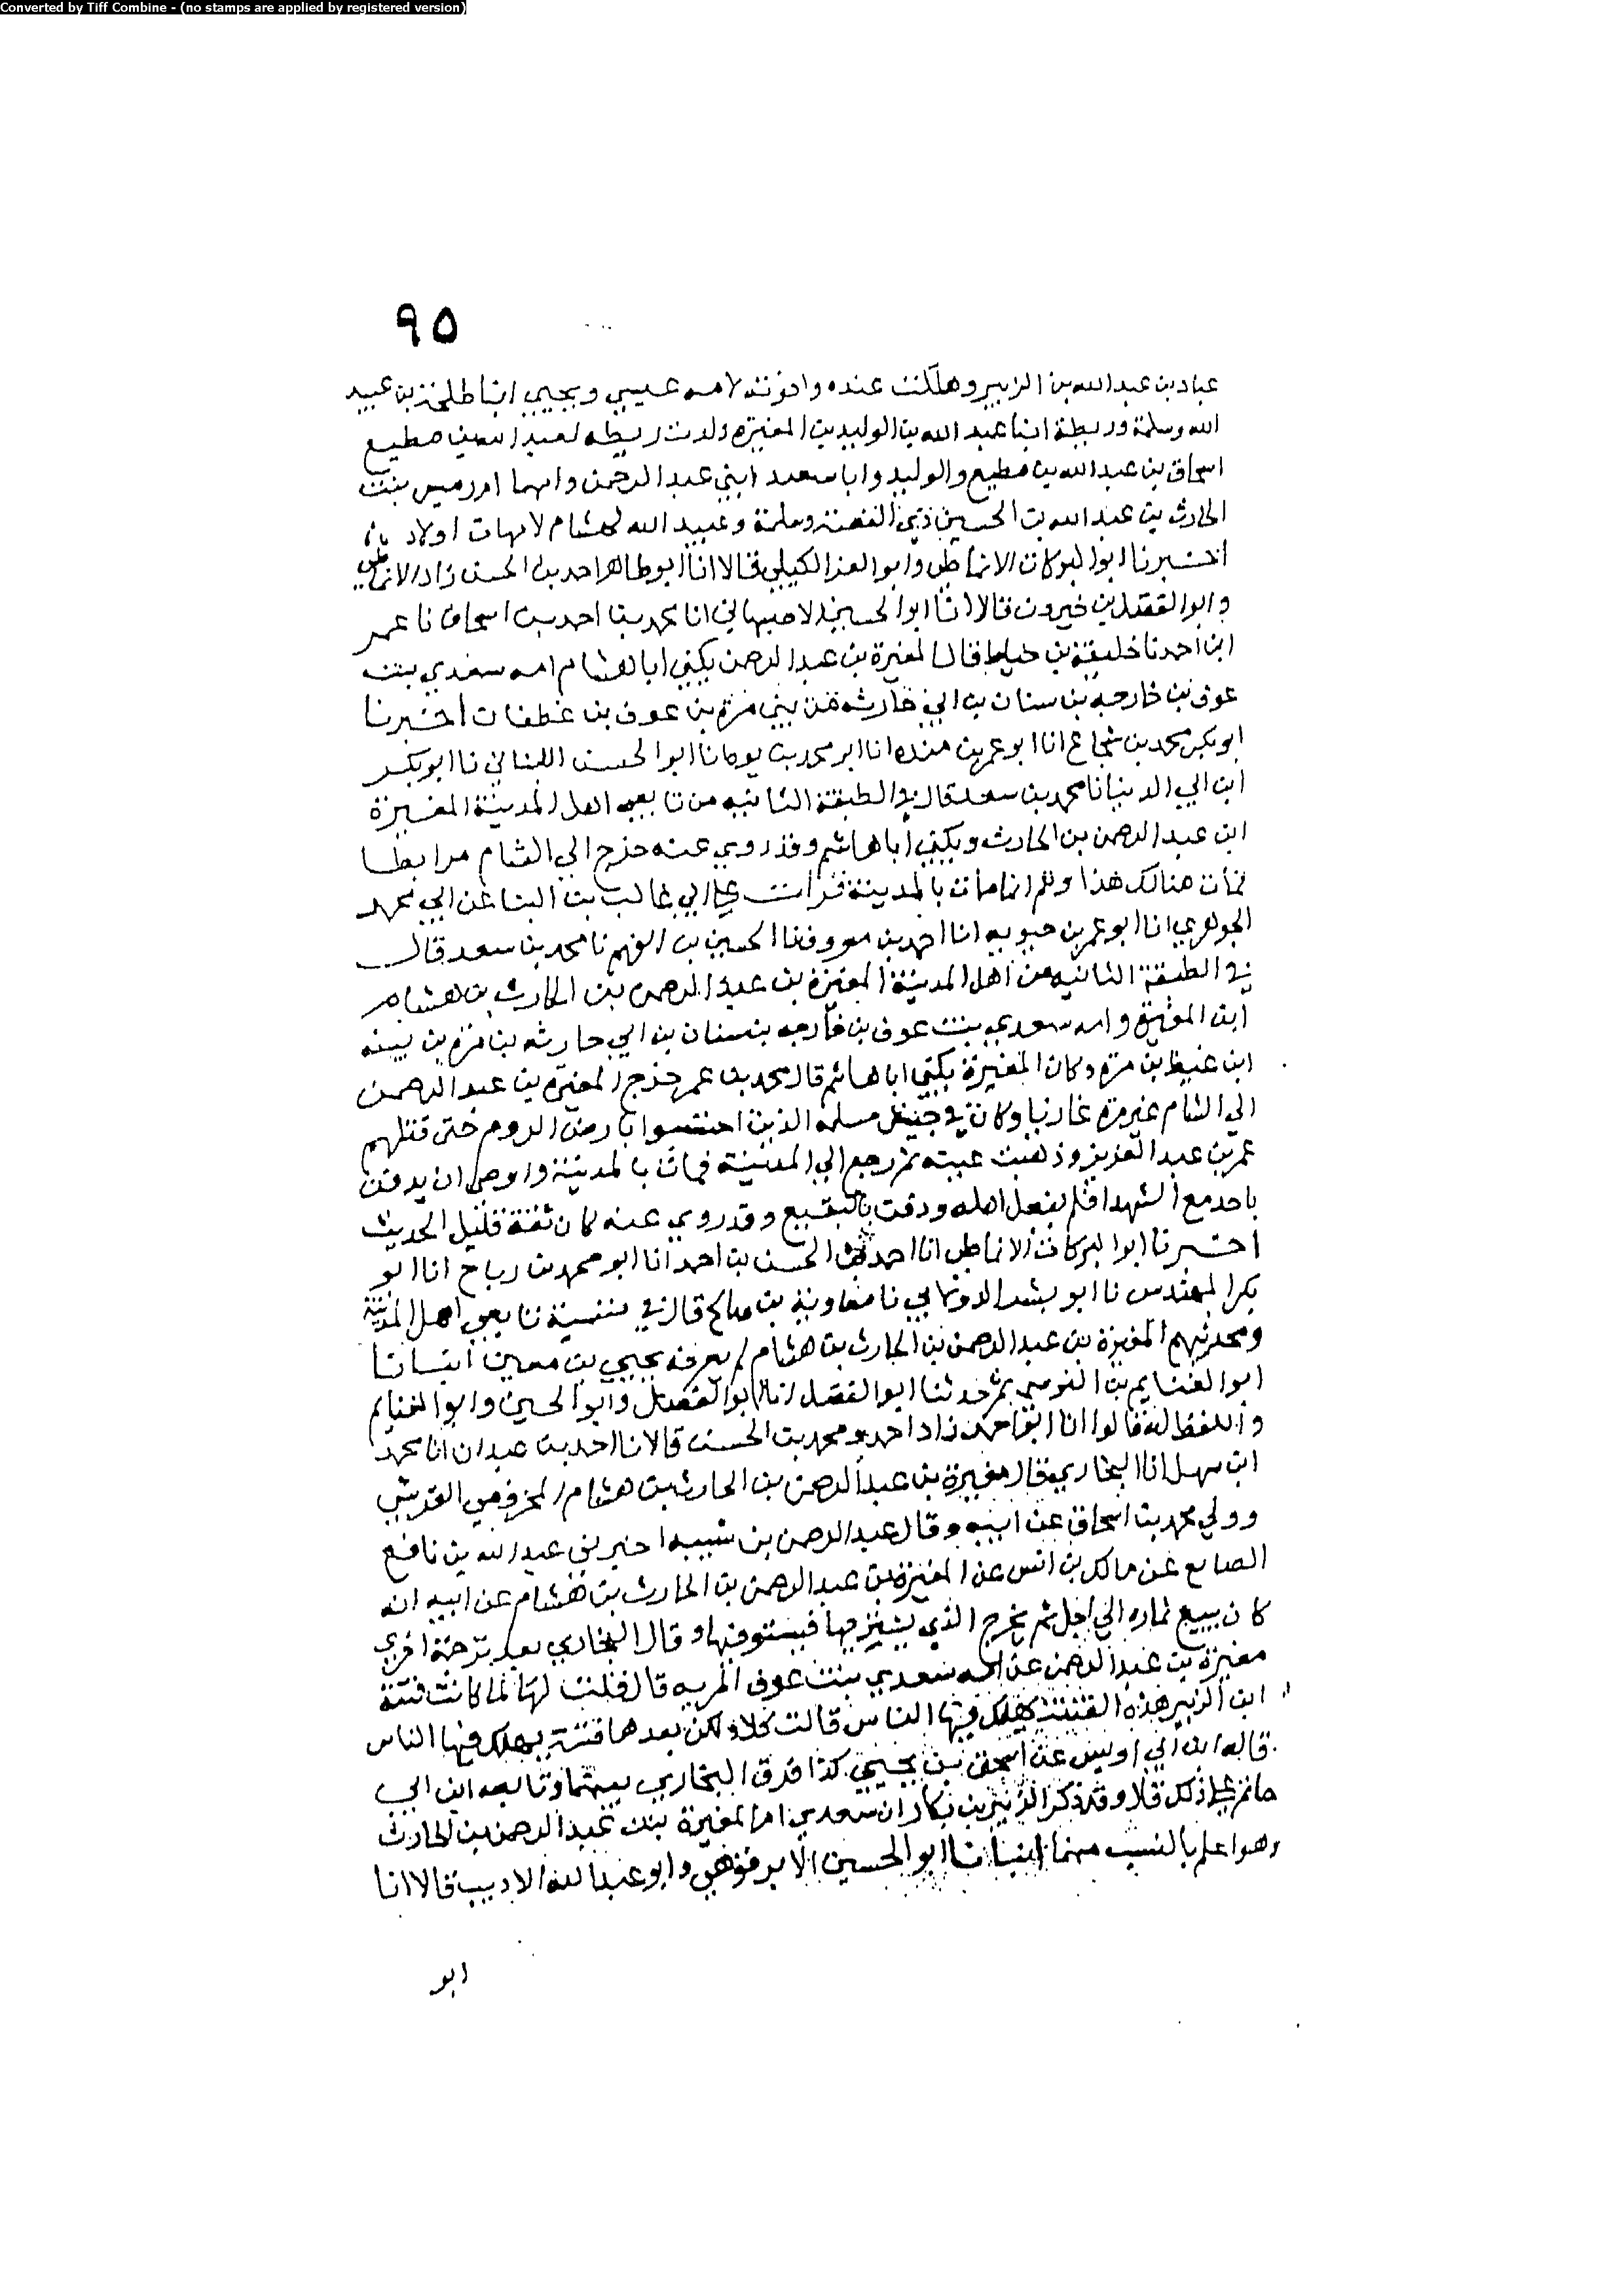 Converted by Tiff Combine - (no stamps are applied by registered version)
٩٥
عباد بن عبد الله بن الزبير وهلكت عنده واخوته لامه عيسي ويحيي ابنا طلحة بن عبيد
الله وسلمة وريطة ابنا عبد الله بن الوليد بن المغيرة ولدت ريطه لعبد الله بن مطيع
اسحاق بن عبد الله بن مطيع والوليد وابا سعيد ابني عبد الرحمن وامهما ام رميس بنت
الحارث بن عبد الله بن الحسين ذي الغصة وسلمة وعبيد الله لهشام لامهات اولاد
اخبرنا ابو البركات الانماطي وابو العز الكيلي قالا انا ابو طاهر احمد بن الحسن زاد الانماطي
وابو الفضل بن خيرون قالا انا ابو الحسين الاصبهاني انا محمد بن احمد بن اسحاق نا عمر
ابن احمد نا خليفة بن خياط قال المغيرة بن عبد الرحمن يكني ابا هشام امه سعدي بنت
عوف بن خارجه بن سنان بن ابي حارثه من بني مرة بن عوف بن غطفان اخبرنا
ابو بكر محمد بن شجاع انا ابو عمرو بن منده انا ابو محمد بن يوه انا ابو الحسن اللبناني نا ابو بكر
ابن ابي الدنيا نا محمد بن سعد قال في الطبقة الثانيه من تابعي اهل المدينة المغيرة
ابن عبد الرحمن بن الحارث ويكني ابا هاشم وقد روي عنه خرج الي الشام مرابطا
فمات هنالك هذا وهم انما مات بالمدينة قرات علي ابي غالب بن البنا عن ابي محمد
الجوهري انا ابو عمر بن حيويه انا احمد بن معروف نا الحسين بن الفهم نا محمد بن سعد قال
في الطبقة الثانيه من اهل المدينة المغيرة بن عبد الرحمن بن الحارث بن هشام
ابن المغيرة وامه سعدي بنت عوف بن خارجه بن سنان بن ابي حارثه بن مرة بن نشبه
ابن غيظ بن مرة وكان المغيرة يكني ابا هاشم قال محمد بن عمر خرج المغيرة بن عبد الرحمن
الي الشام غير مرة غازيا وكان في جيش مسلمه الذين احتبسوا بارض الروم حتي قفلهم
عمر بن عبد العزيز وذهبت عينه ثم رجع الي المدينة فمات بالمدينة واوصي ان يدفن
باحد مع الشهدا فلم يفعل اهله ودفن بالبقيع وقد روي عنه كان ثقة قليل الحديث
اخبرنا ابو البركات الانماطي انا احمد بن الحسن بن احمد انا ابو محمد بن رباح انا ابو
بكر المهندس نا ابو بشر الدولابي نا معاوية بن صالح قال في تسمية تابعي اهل المدينة
ومحدثيهم المغيرة بن عبد الرحمن بن الحارث بن هشام لم يعرفه يحيي بن معين انبانا
ابو الغنايم بن النرسي ثم حدثنا ابو الفضل انا ابو الفضل وابو الحسين وابو الغنايم
واللفظ له قالوا انا ابو احمد زاد احمد ومحمد بن الحسن قالا انا احمد بن عبدان انا محمد
ابن سهل انا البخاري قال مغيرة بن عبد الرحمن بن الحارث بن هشام المخزومي القرشي
وولي محمد بن اسحاق عن ابيه وقال عبد الرحمن بن شيبه اخبرني عبد الله بن نافع
الصايع عن مالك بن انس عن المغيرة بن عبد الرحمن بن الحارث بن هشام عن ابيه انه
كان يبيع ثماره الي اجل ثم يخرج الذي يشتريها فيستوفيها وقال البخاري بعد ترجمة اخري
مغيرة بن عبد الرحمن عن امه سعدي بنت عوف المريه قال قلت لها لما كانت فتنة
ابن الزبير هذه الفتنة يهلك فيها الناس قالت كلا ولكن بعدها فتنة يهلك فيها الناس
قاله ابن ابي اويس عن اسحق بن يحيي كذا فرق البخاري بينهما وتابعه ابن ابي
حاتم علي ذلك قلا وقد ذكر الزبير بن بكار ان سعدي ام المغيرة بن عبد الرحمن بن الحارث
وهو اعلم بالنسب منهما انبانا ابو الحسين الابرقوهي وابو عبد الله الاديب قالا انا
ابو